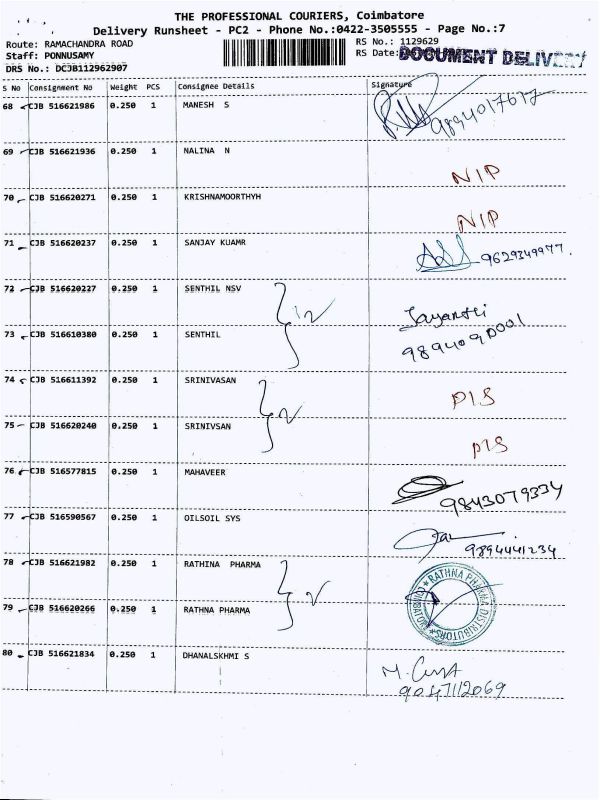 THE PROFESSIONAL COURIERS, Coimbatore
Delivery Runsheet - PC2 - Phone No.:0422-3505555 - Page No.:7
Route: RAMACHANDRA ROAD
Staff: PONNUSAMY
DRS No.: DCJB112962907
RS No.: 1129629
RS Date:
DOCUMENT DELIVERY
S No Consignment No Weight PCS Consignee Details Signature
68 CJB 516621986 0.250 1 MANESH S 9894017677
69 CJB 516621936 0.250 1 NALINA N NIP
70 CJB 516620271 0.250 1 KRISHNAMOORTHYH NIP
71 CJB 516620237 0.250 1 SANJAY KUAMR 9629349977.
72 CJB 516620227 0.250 1 SENTHIL NSV Jayanthi
73 CJB 516610380 0.250 1 SENTHIL 9894090001
74 CJB 516611392 0.250 1 SRINIVASAN DIS
75 CJB 516620240 0.250 1 SRINIVSAN DIS
76 CJB 516577815 0.250 1 MAHAVEER 9843079334
77 CJB 516590567 0.250 1 OILSOIL SYS 9894441234
78 CJB 516621982 0.250 1 RATHINA PHARMA
79 CJB 516620266 0.250 1 RATHNA PHARMA
RATHNA PHARMA DISTRIBUTORS COIMBATORE
80 CJB 516621834 0.250 1 DHANALSKHMI S M.
9047112069